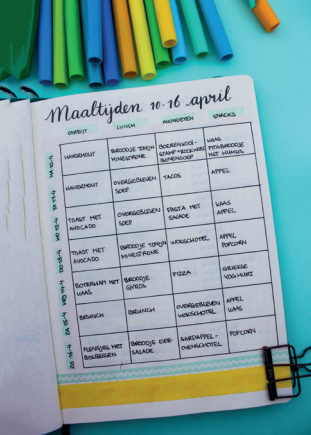 Maaltijden 10-16 april
ONTBIJT LUNCH AVONDETEN SNACKS
MA 10-4
HAVERMOUT
BROODJE TONIJN
MINESTRONE
BOERENKOOL-
STAMP + ROOKWORST
BONENSOEP
KAAS
PITABROODJE
MET HUMUS
DI 11-4
HAVERMOUT
OVERGEBLEVEN
SOEP
TACOS
APPEL
WO 12-4
TOAST MET
AVOCADO
OVERGEBLEVEN
SOEP
PASTA MET
SALADE
KAAS
APPEL
DO 13-4
TOAST MET
AVOCADO
BROODJE TONIJN
MINESTRONE
WOKSCHOTEL
APPEL
POPCORN
VRIJ 14-4
BOTERHAM MET
KAAS
BROODJE
GYROS
PIZZA
GRIEKSE
YOGHURT
ZA 15-4
BRUNCH
BRUNCH
OVERGEBLEVEN
WOKSCHOTEL
APPEL
KAAS
ZO 16-4
FLENSJES MET
BOSBESSEN
BROODJE EIER-
SALADE
AARDAPPEL-
OVENSCHOTEL
POPCORN